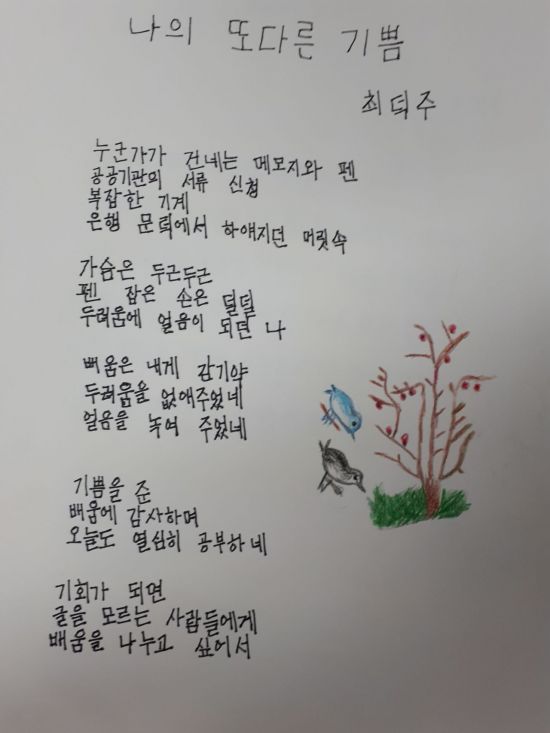 나의 또다른 기쁨
최덕주
누군가가 건네는 메모지와 펜
공공기관의 서류 신청
복잡한 기계
은행 문턱에서 하얘지던 머릿속
가슴은 두근두근
펜 잡은 손은 덜덜
두려움에 얼음이 되던 나
배움은 내게 감기약
두려움을 없애주었네
얼음을 녹여 주었네
기쁨을 준
배움에 감사하며
오늘도 열심히 공부하네
기회가 되면
글을 모르는 사람들에게
배움을 나누고 싶어서